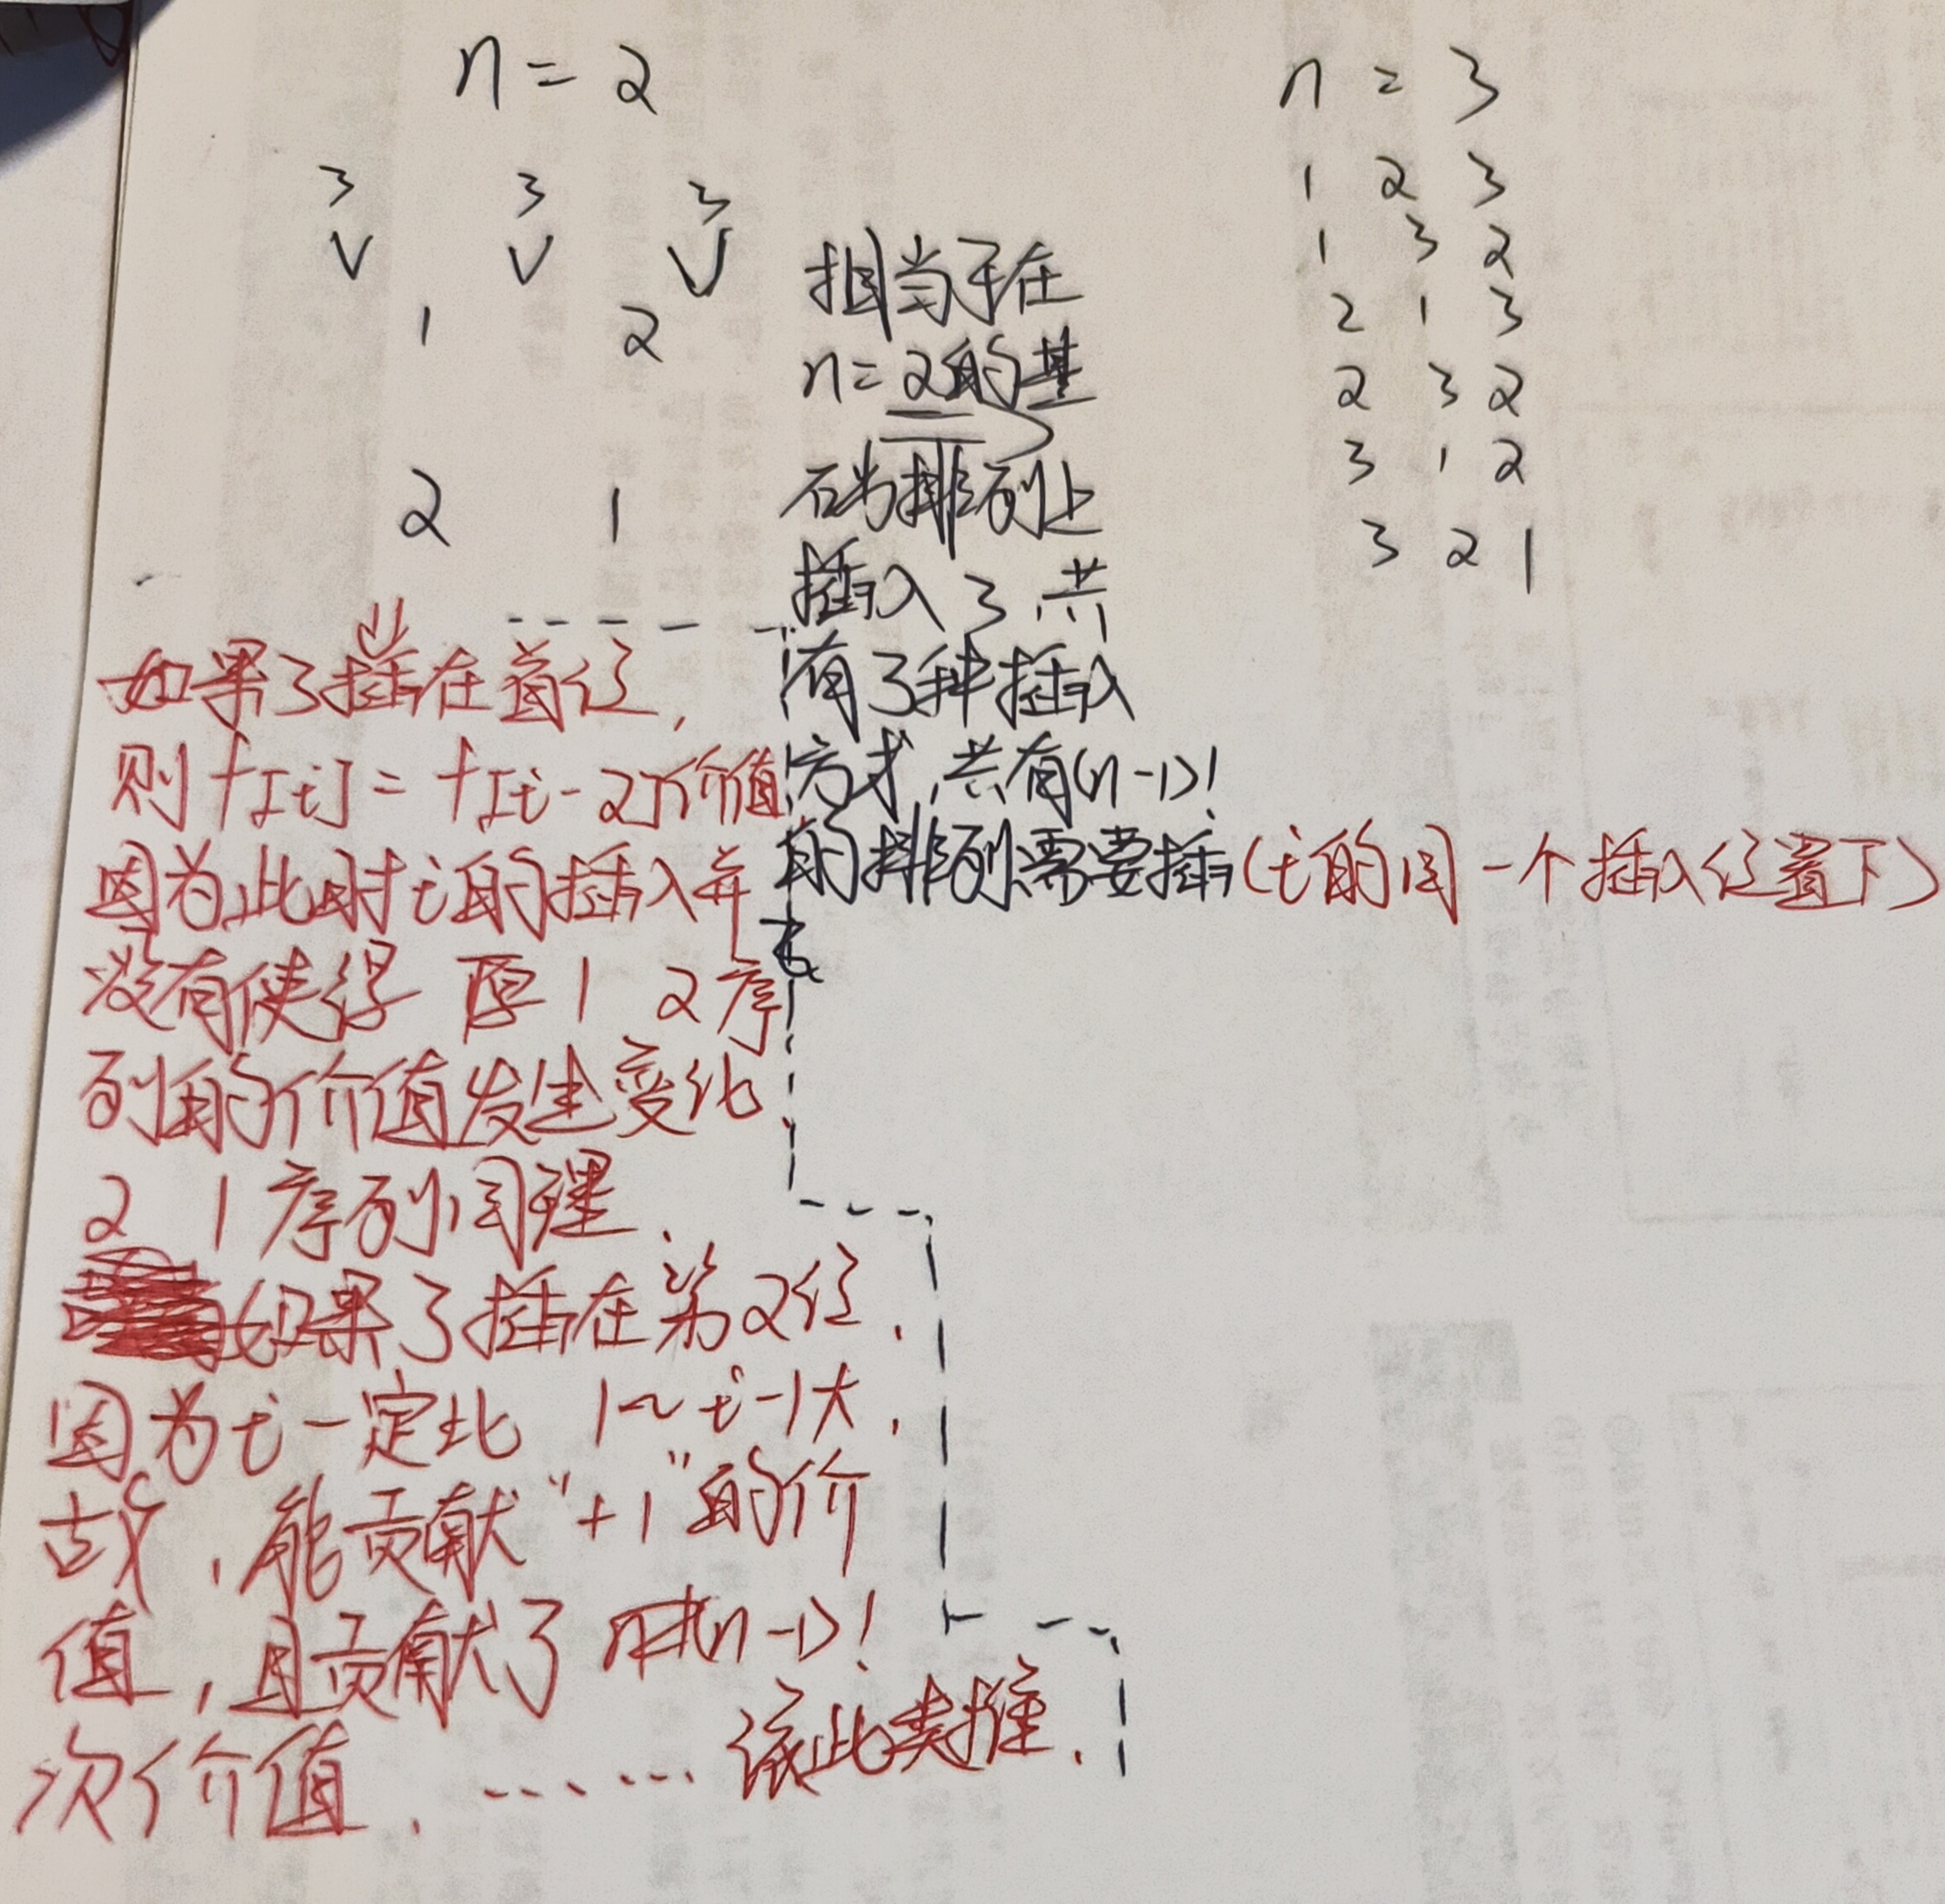 n = 2
3 3 3
V V V
1 2
2 1
相当于在
n = 2的基
础排列上
插入 3,共
有3种插入
方式,共有(n-1)!
的排列需要插(i的同一个插入位置下)
n = 3
1 2 3
1 3 2
2 1 3
2 3 2
3 1 2
3 2 1
如果3插在首位,
则 f[i] = f[i-2]价值
因为此时i的插入并
没有使得 原 1 2 序
列的价值发生变化
2 1 序列同理.
如果3插在第2位,
因为i一定比 1~i-1大,
故,能贡献"+1"的价
值,且贡献了 (n-1)!
次价值. ...... 依此类推.